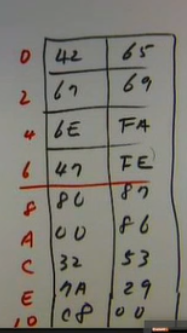 0 42 65
2 67 69
4 6E FA
6 47 FE
8 80 87
A 00 86
C 32 53
E 7A 29
10 C8 00